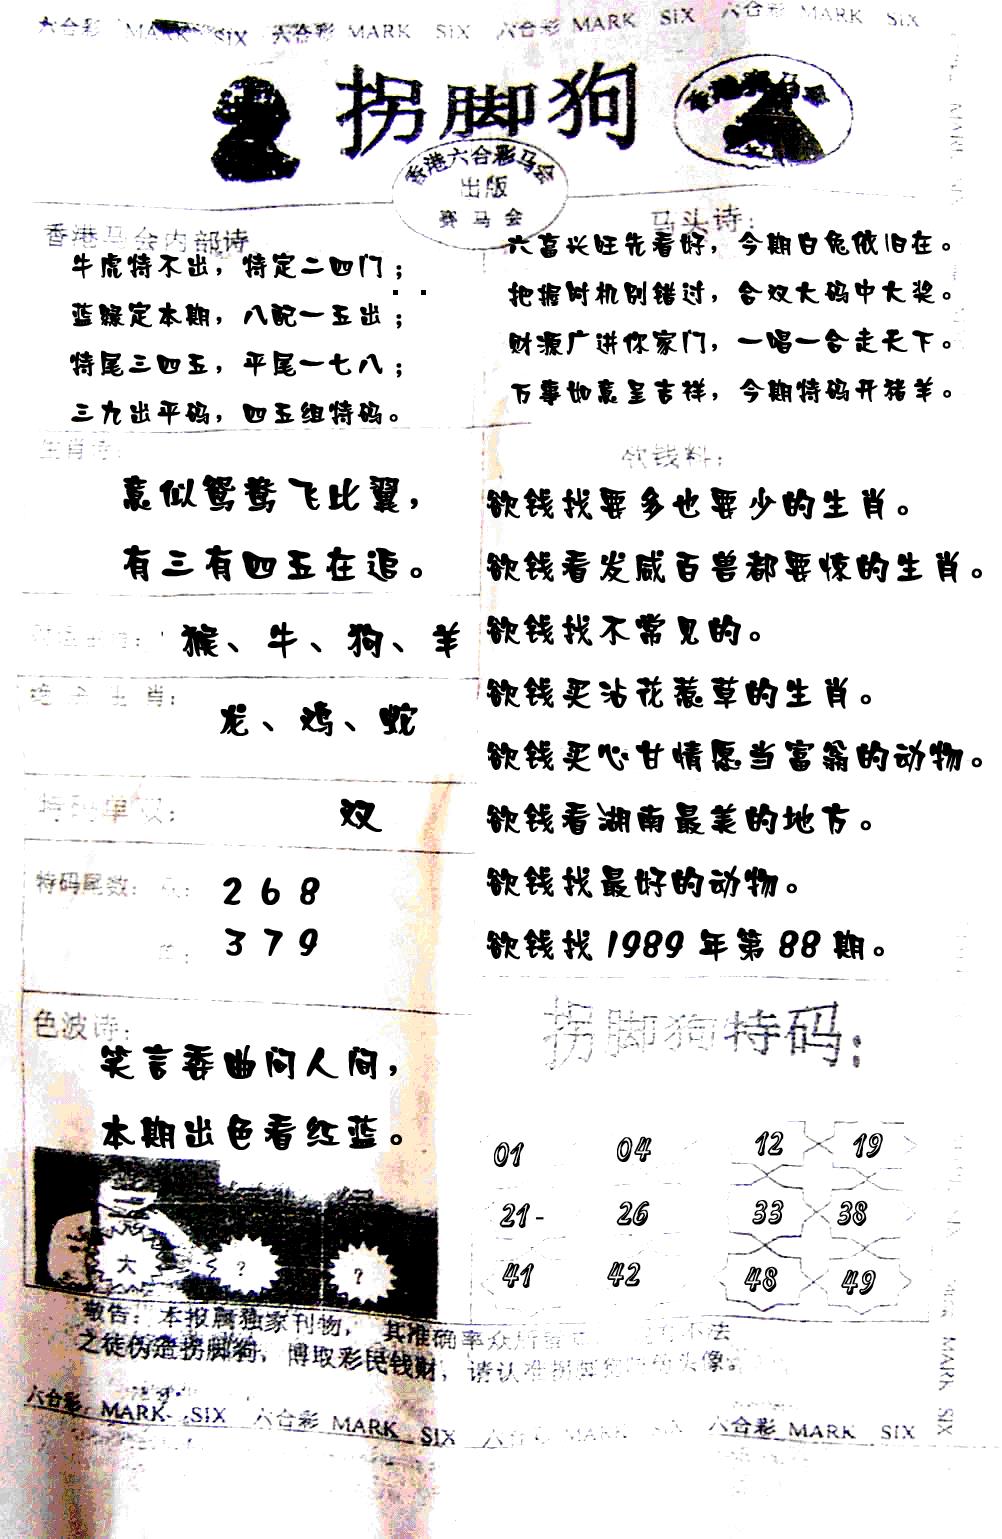 六合彩 MARK SIX 六合彩 MARK SIX 六合彩 MARK SIX 六合彩 MARK SIX
拐脚狗
香港六合彩马会
出版
赛马会
香港马会内部诗
牛虎特不出，特定二四门；
蓝绿定本期，八配一五出；
特尾三四五，平尾一七八；
三九出平码，四五组特码。
马头诗：
六畜兴旺先看好，今期白兔依旧在。
把握时机别错过，合双大码中大奖。
财源广进你家门，一唱一合走天下。
万事如意呈吉祥，今期特码开猪羊。
生肖诗：
意似鸳鸯飞比翼，
有三有四五在追。
猴、牛、狗、羊
绝杀生肖：
龙、鸡、蛇
特码单双：
双
特码尾数：
2 6 8
3 7 9
色波诗：
笑言委曲问人间，
本期出色看红蓝。
大
?
?
欲钱料：
欲钱找要多也要少的生肖。
欲钱看发威百兽都要惊的生肖。
欲钱找不常见的。
欲钱买沾花惹草的生肖。
欲钱买心甘情愿当富翁的动物。
欲钱看湖南最美的地方。
欲钱找最好的动物。
欲钱找1989年第88期。
拐脚狗特码：
01 04 12 19
21- 26 33 38
41 42 48 49
敬告：本报属独家刊物，其准确率众所 不法
之徒伪造拐脚狗，博取彩民钱财，请认准拐脚 头像
六合彩 MARK SIX 六合彩 MARK SIX 六合彩 MARK SIX 六合彩 MARK SIX
MARK SIX